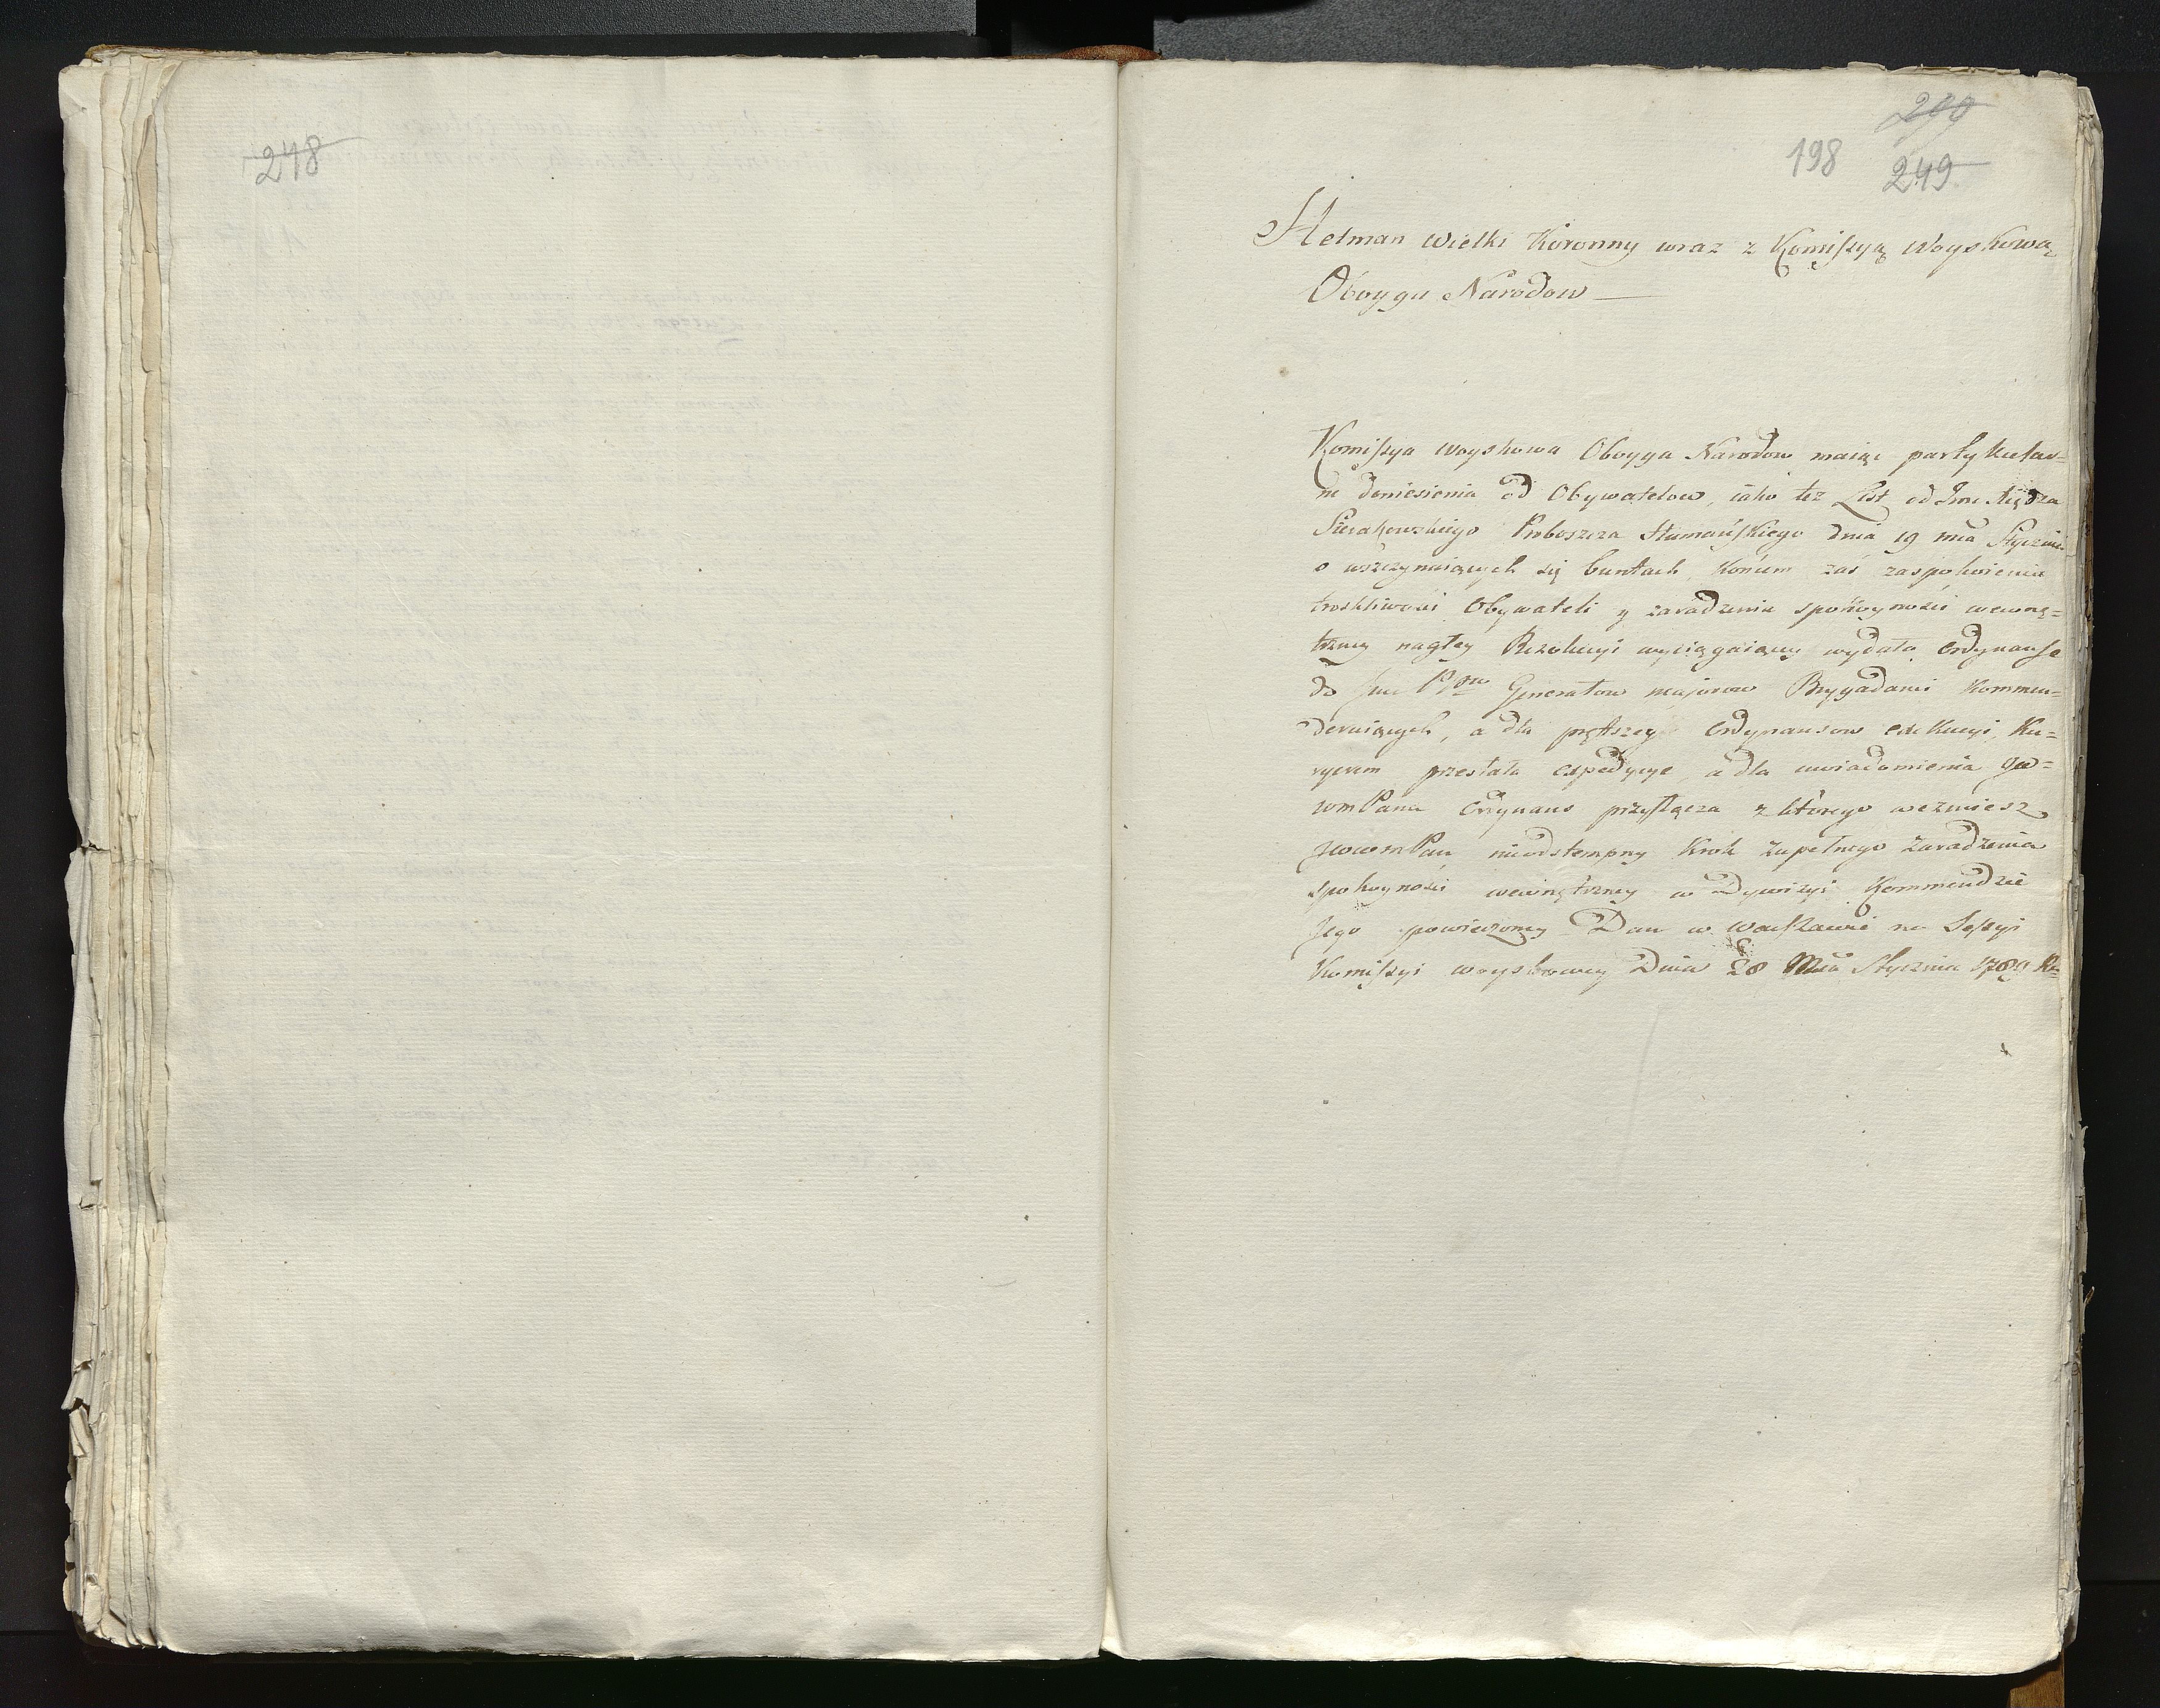 248
290
198 249
Hetman Wielki Koronny wraz z Komissyą Woyskową
Oboyga Narodow
Komissya Woyskowa Oboyga Narodow maiąc partykular=
ne doniesienia od Obywatelow, iako tez List od Jmc Xiędza
Sierakowskiego Proboszcza Humańskiego dnia 19 mca Stycznia
o wszczynaiących się buntach, Koncem zaś zaspokoienia
troskliwości Obywateli y zaradzenia spokoyności wewnę=
trzney nagłey Rezolucyi wyciągaiącey wydała Ordynanse
do Jmc PPow Generałow majorow Brygadami Kommen=
deruiących, a dla prętszey Ordynansow exekucyi, Ku=
ryerem przesłała expedycye, a dla uwiadomienia JW=
WmPana Ordynans przyłącza z którego weźmiesz
JWWmPan nieodstempny Krok zupełnego zaradzenia
spokoyności wewnętrzney w Dywizyi Kommendzie
Jego powierzoney Dan w Warszawie na Sessyi
Komissyi woyskowey Dnia 28 Mca Stycznia 1789 Ru